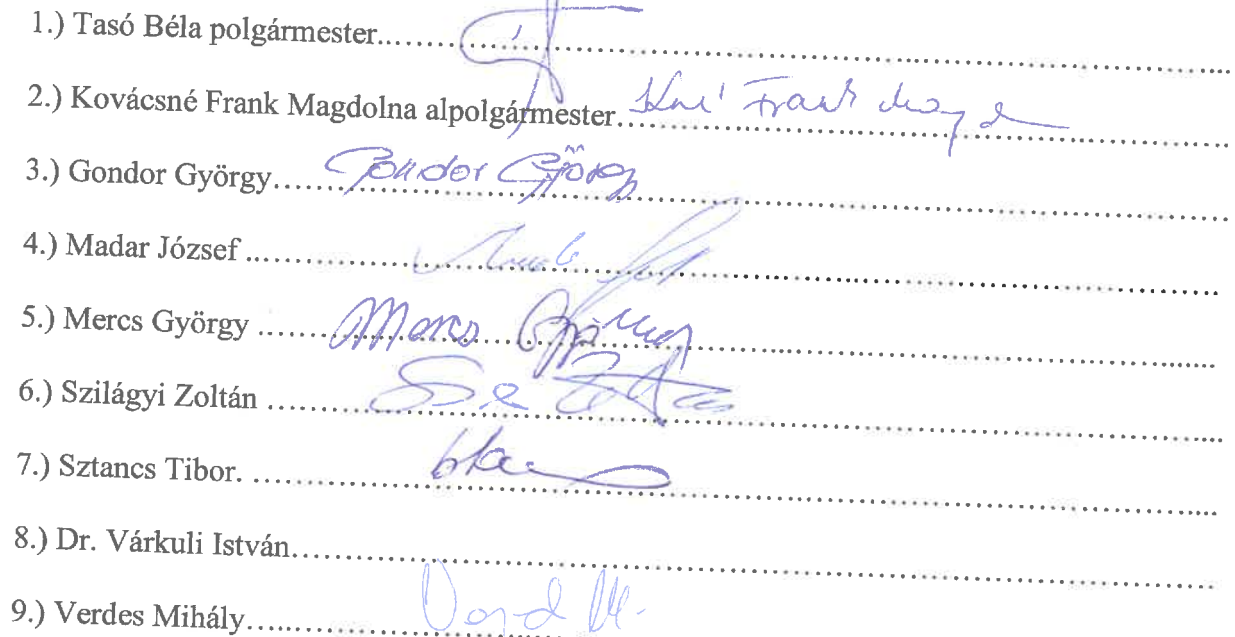 1.) Tasó Béla polgármester
2.) Kovácsné Frank Magdolna alpolgármester Kné Frank Magd
3.) Gondor György Gondor György
4.) Madar József
5.) Mercs György Mercs György
6.) Szilágyi Zoltán
7.) Sztancs Tibor.
8.) Dr. Várkuli István
9.) Verdes Mihály